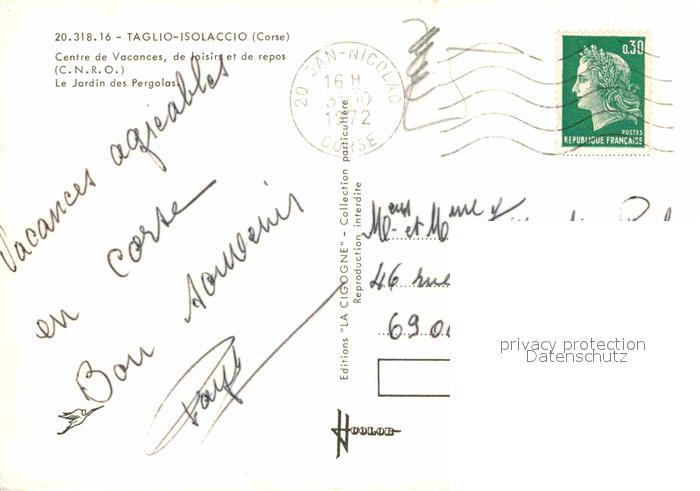 20.318.16 - TAGLIO-ISOLACCIO (Corse)
Centre de Vacances, de loisirs et de repos
(C.N.R.O.)
Le Jardin des Pergolas
Vacances agréables
en corse
Bon souvenir
20 SAN-NICOLAO
16 H
1972
CORSE
0,30
POSTES
REPUBLIQUE FRANÇAISE
Editions "LA CIGOGNE" - Collection particulière
Reproduction interdite
et
46 rue
69
privacy protection
Datenschutz
COLOR